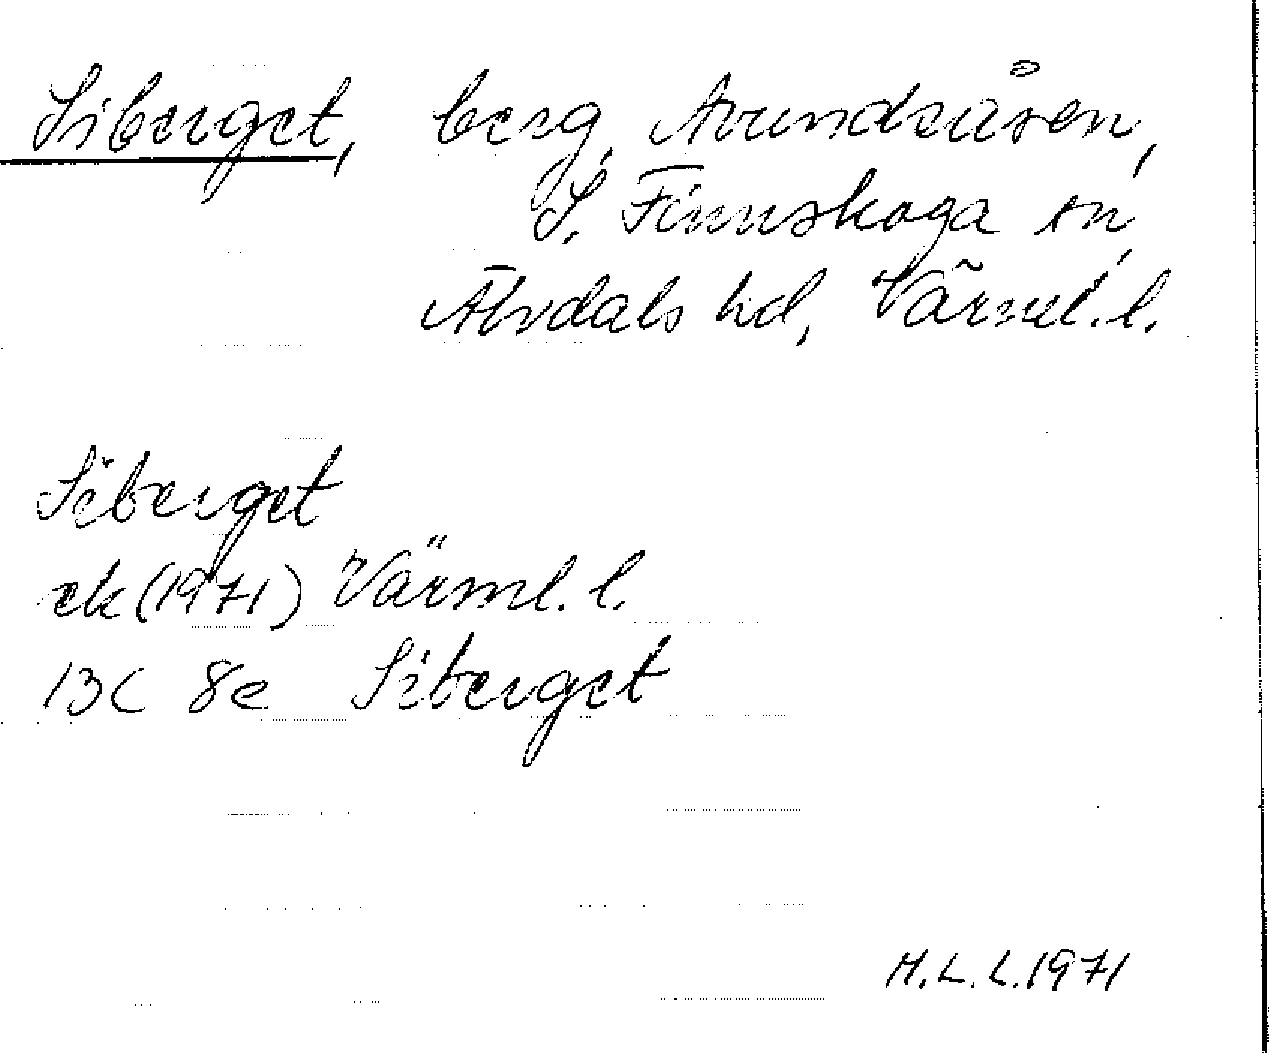 Siberget, berg, Avundsåsen,
S. Finnskoga sn,
Älvdals hd, Värml. l.
Siberget
ek (1971) Värml. l.
13C 8e Siberget
H.L.L. 1971